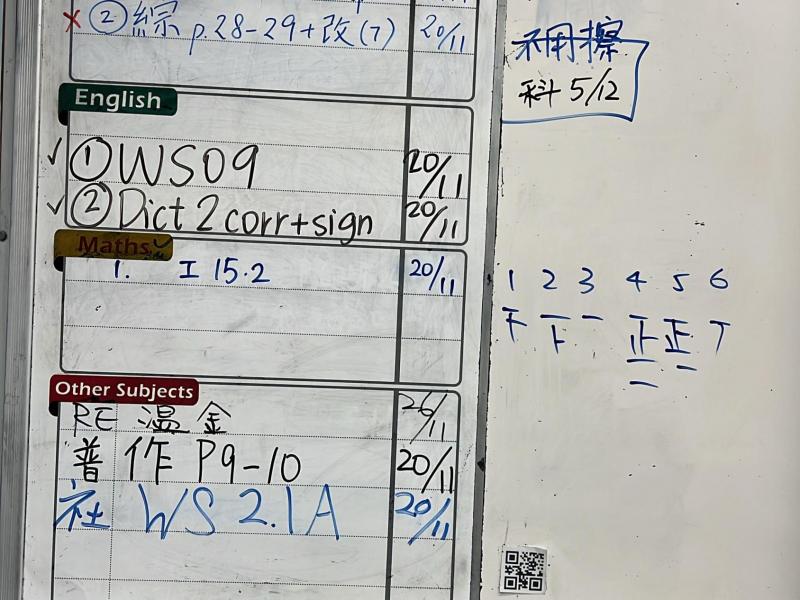 x ② 綜 p.28-29+改(7) 20/11
English
✓ ① WS09 20/11
✓ ② Dict 2 corr+sign 20/11
Maths
1. 工 15.2 20/11
Other Subjects
RE 溫金 26/11
普 作 P9-10 20/11
社 WS 2.1A 20/11
不用擦
科 5/12
1 2 3 4 5 6
下 一 一 正 正 丅
丅 一 一